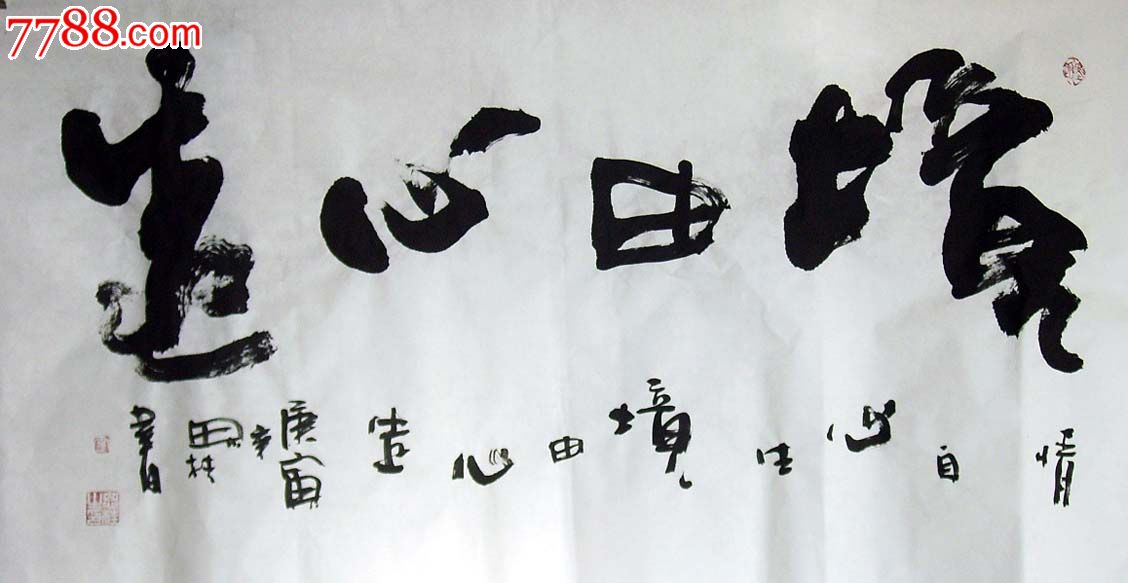 7788.com
境由心造
情自心生境由心造庚寅
書